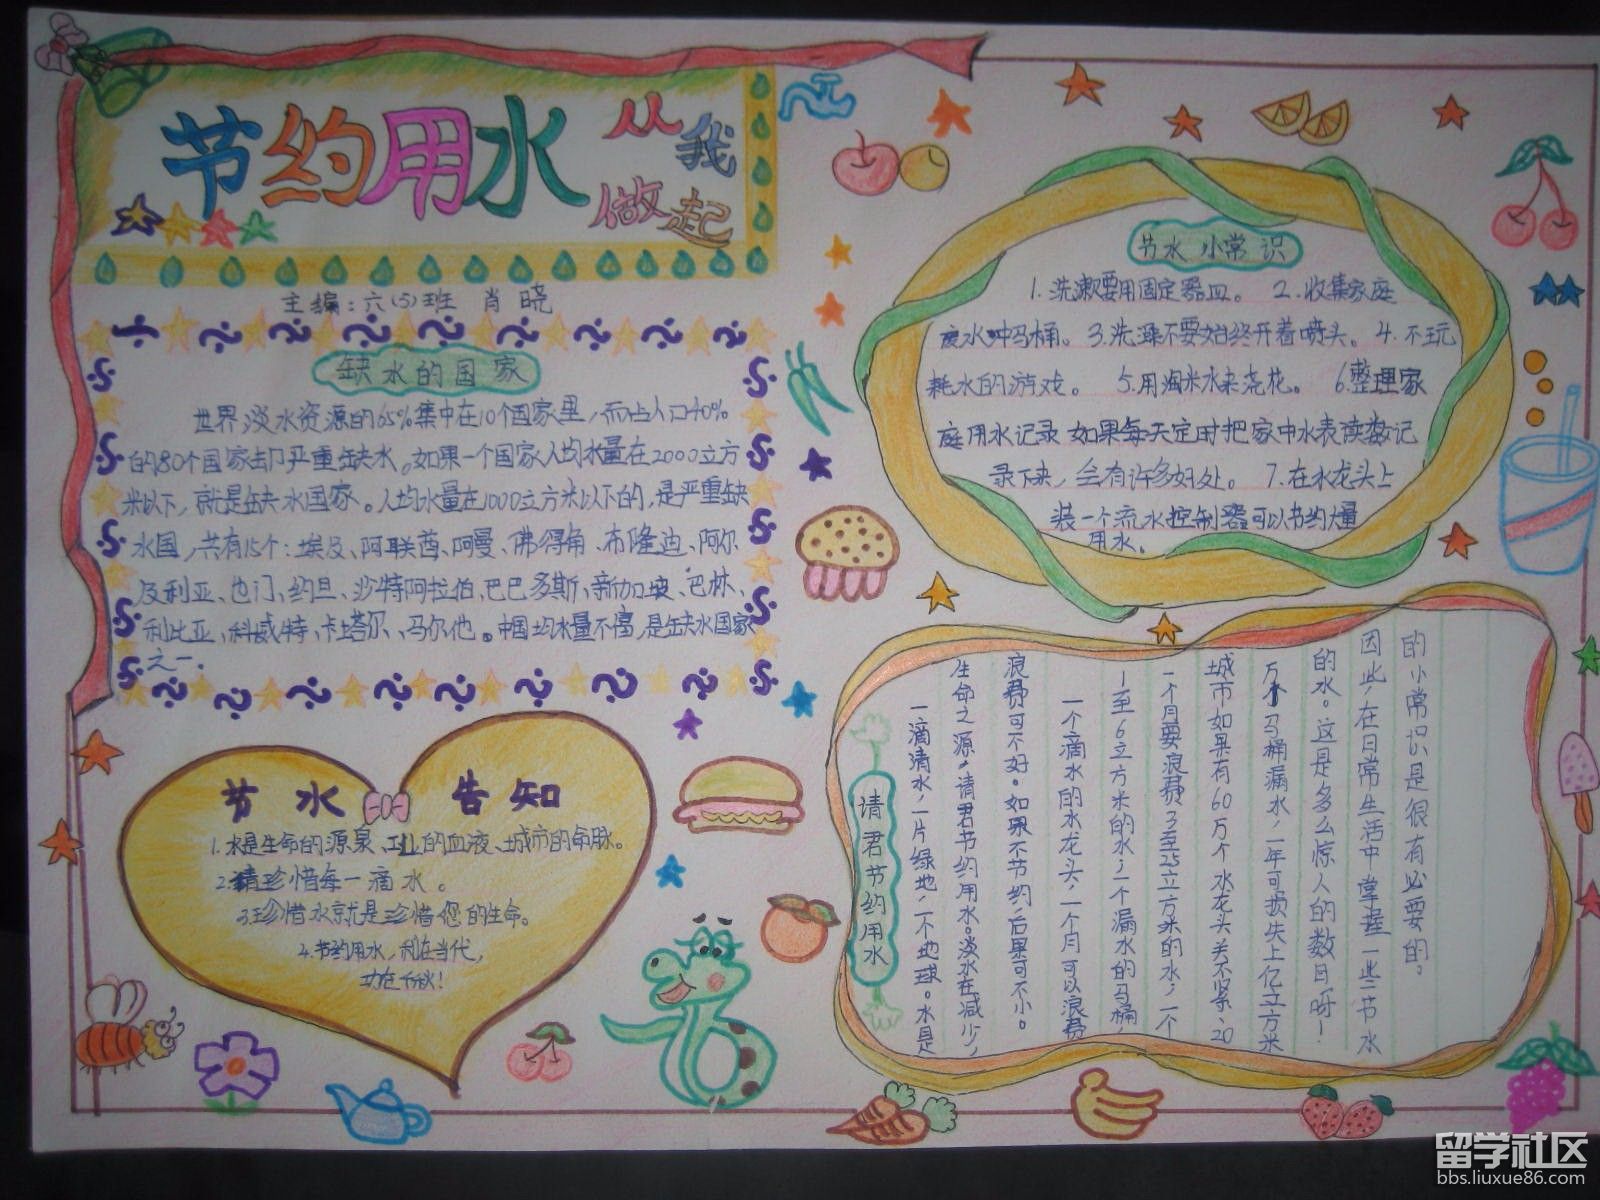 节约用水
从我
做起
主编：六(5)班 肖晓
缺水的国家
世界淡水资源的65%集中在10个国家里，而占人口40%
的80个国家却严重缺水。如果一个国家人均水量在2000立方
米以下，就是缺水国家。人均水量在1000立方米以下的，是严重缺
水国，共有15个：埃及、阿联酋、阿曼、佛得角、布隆迪、阿尔
及利亚、也门、约旦、沙特阿拉伯、巴巴多斯、新加坡、巴林、
利比亚、科威特、卡塔尔、马尔他。中国均水量不高，是缺水国家
之一.
节水 告知
1.水是生命的源泉、工业的血液、城市的命脉。
2.请珍惜每一滴水。
3.珍惜水就是珍惜您的生命。
4.节约用水，利在当代，
功在千秋!
节水 小常识
1.洗漱要用固定器皿。 2.收集家庭
废水冲马桶。3.洗澡不要始终开着喷头。4.不玩
耗水的游戏。 5.用淘米水来浇花。 6.整理家
庭用水记录 如果每天定时把家中水表读数记
录下来，会有许多好处。 7.在水龙头上
装一个流水控制器可以节约大量
用水。
请君节约用水
一滴清水，一片绿地，一个地球。水是
生命之源，请君节约用水。淡水在减少，
浪费可不好。如果不节约，后果可不小。
一个滴水的水龙头，一个月可以浪费
1至6立方米的水，一个漏水的马桶
一个月要浪费3至25立方米的水，一个
城市如果有60万个水龙头关不紧、20
万个马桶漏水，一年可损失上亿立方米
的水。这是多么惊人的数目呀！
因此，在日常生活中掌握一些节水
的小常识是很有必要的。
留学社区
bbs.liuxue86.com